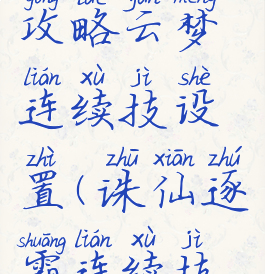 gōng lüè yún mèng
攻略云梦
lián xù jì shè
连续技设
zhì zhū xiān zhú
置(诛仙逐
shuāng lián xù jì
霜连续技